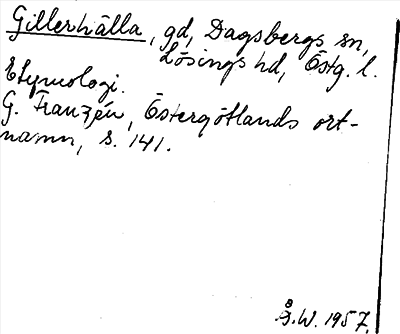 Gillerhälla, gd, Dagsbergs sn,
Lösings hd, Östg. l.
Etymologi.
G. Franzén, Östergötlands ort-
namn, s. 141.
Å.W. 1957.